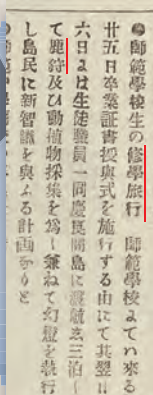 ●師範學校生の修學旅行 師範學校よてハ來る
廿五日卒業証書授與式を施行する由にて其翌廿
六日よは生徒職員一同慶良間島に渡航し三泊し
て鹿狩及び動植物採集を為し兼ねて幻燈を執行
し島民に新智識を與ふる計画なりと